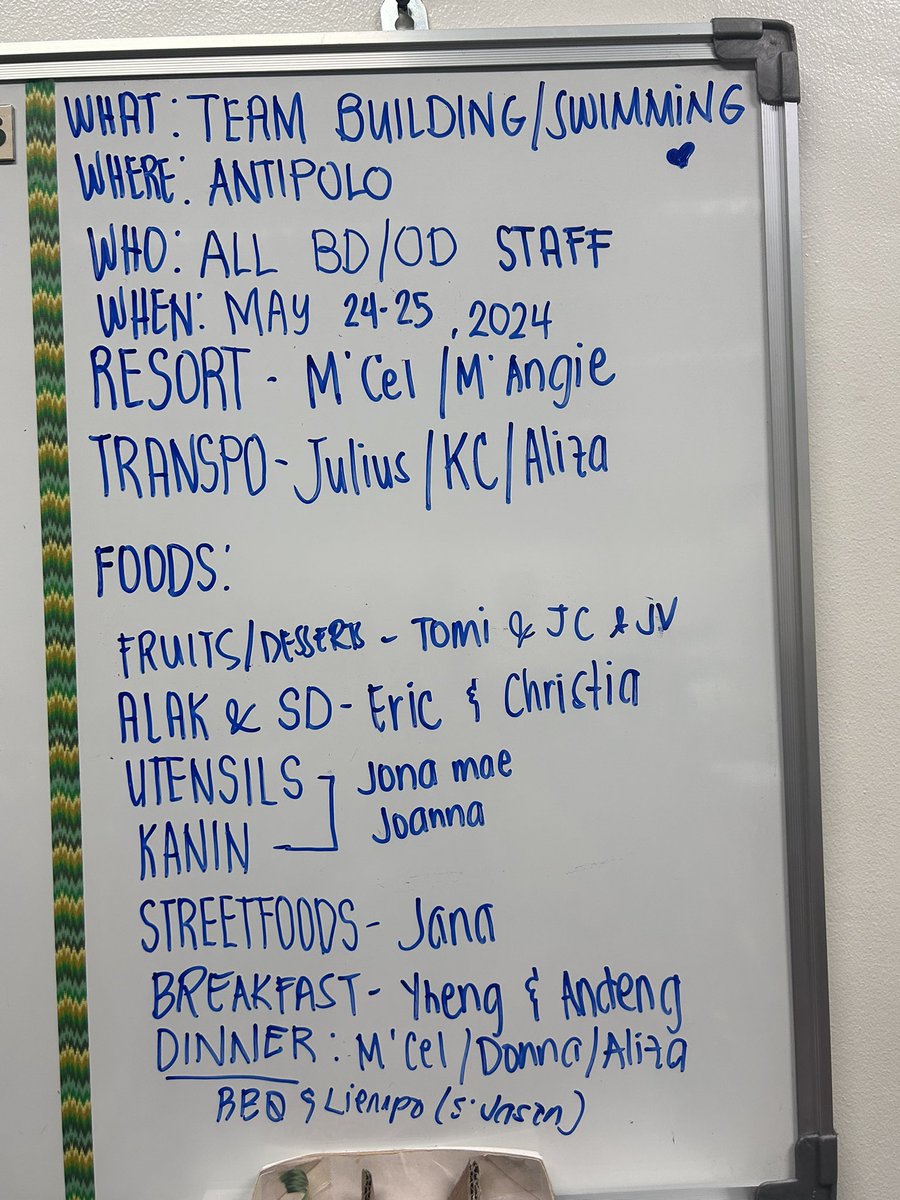 WHAT: TEAM BUILDING/SWIMMING
WHERE: ANTIPOLO
WHO: ALL BD/OD STAFF
WHEN: MAY 24-25, 2024
RESORT - M'Cel/M'Angie
TRANSPO - Julius/KC/Aliza
FOODS:
FRUITS/DESSERTS - Tomi & JC & JV
ALAK & SD - Eric & Christia
UTENSILS Jona mae
KANIN Joanna
STREETFOODS - Jana
BREAKFAST - Yheng & Andeng
DINNER: M'Cel/Donna/Aliza
BBQ & Liempo (S. Jason)